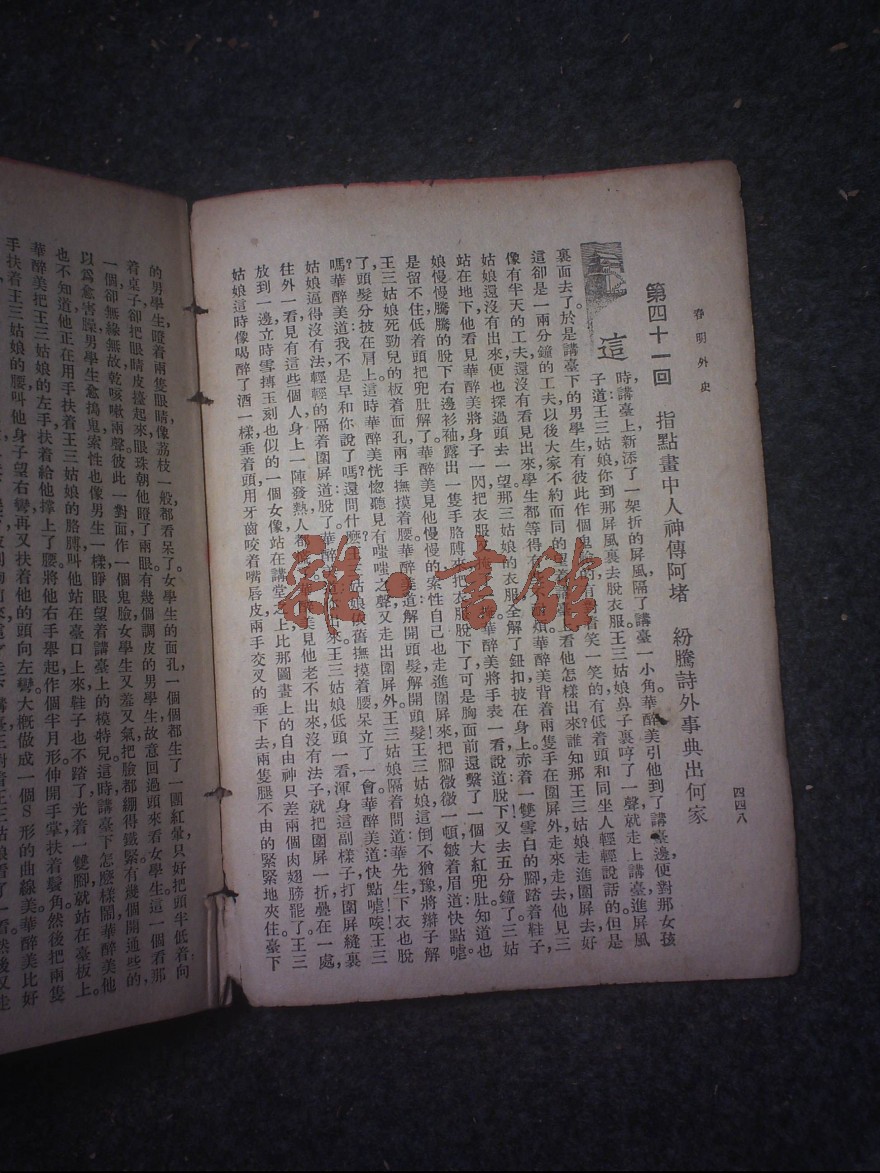 春明外史
四四八
第四十一回　指點畫中人神傳阿堵　紛騰詩外事典出何家
這
時，講臺上新添了一架折的屏風，隔了講臺一小角。華醉美引他到了講臺邊，便對那女孩
子道：王三姑娘，你到那屏風裏去脫衣服。王三姑娘鼻子裏哼了一聲，就走上講臺，進屏風
裏面去了。於是講臺下的男學生，有彼此作個鬼臉的，有
着笑一笑的，有低着頭和同坐人輕輕說話的。但是
這卻是一兩分鐘的工夫，以後大家不約而同的望
看他怎樣出來。誰知那王三姑娘走進圍屏去，好
像有半天的工夫，還沒有看見出來，學生都等得
煩。華醉美背着兩隻手，在圍屏外走來走去，他見三
姑娘還沒有出來，便也探過頭去一望。那三姑娘的衣服，全解了鈕扣，披在身上，赤着一雙雪白的腳，踏着鞋子，
站在地下，他看見華醉美，將身子一閃，把衣服又掩
華醉美將手表一看，說道：脫下！又去五分鐘了。三姑
娘慢慢騰騰的脫下右邊衫袖，露出一隻手胳膊來，把衣服脫下了，可是胸面前還繫了一個大紅兜肚，知道也
是留不住，低着頭把兜肚解了。華醉美見他慢慢的，索性自己也走進圍屏來，把腳微微一頓，皺着眉道：快點嘘！
王三姑娘死勁兒的板着面孔，兩手撫摸着腰。華醉美道：解開頭髮，解開頭髮！王三姑娘這倒不猶豫，將辮子解
了，頭髮分披在肩上。這時華醉美恍惚聽見有嗤嗤之聲，又走出圍屏外。王三姑娘隔着問道：華先生，下衣也脫
嗎？華醉美道：我不是早和你說了嗎？還問什麽？王三姑娘
撫摸着腰，呆立了一會。華醉美道：快點嘘！唉！王三
姑娘逼得沒有法，輕輕的隔着圍屏道：脫了。華醉
來。王三姑娘低頭一看，渾身這副樣子，打圍屏縫裏
往外一看，見有這些個人，身上一陣發熱，人都
美見他老不出來，沒有法子，就把圍屏一折，疊在一處，
放到一邊，立時雪摶玉刻也似的一個女像，站在講堂之上，比那圖畫上的自由神，只差兩個肉翅膀罷了。王三
姑娘這時像喝醉了酒一樣，垂着頭，用牙齒咬着嘴唇皮，兩手交叉的垂下去，兩隻腿不由的緊緊地夾住。臺下
的男學生，瞪着兩隻眼睛，像荔枝一般，都看呆了。女學生的面孔，一個個都生了一團紅暈，只好把頭半低着，向
着桌子，卻把眼睛皮擡起來，眼珠朝他瞪了兩眼。有幾個調皮的男學生，故意回過頭來，看女學生，這一個看那
一個，卻無緣無故，乾咳嗽兩聲，彼此一對面，作一個鬼臉。女學生又羞又氣，把臉都綳得鐵緊，有幾個開通些的，
以爲愈害臊，男學生愈搗鬼，索性也像男生一樣，睜眼望着講臺上的模特兒。這時講臺下怎麽樣鬧，華醉美他
也不知道，他正在用手扶着王三姑娘的胳膊，叫他站在臺口上來，鞋子也不踏了，光着一雙腳，就站在臺板上。
華醉美把王三姑娘的左手，扶着給他撑上了腰，將他右手舉起，作個半月形，伸開手掌，扶着鬢角，然後把兩隻
手扶着王三姑娘的腰，叫他身子望右彎，再又扶着他的頭，向左彎，大概做成一個S形的曲線美。華醉美比好
雜·書館